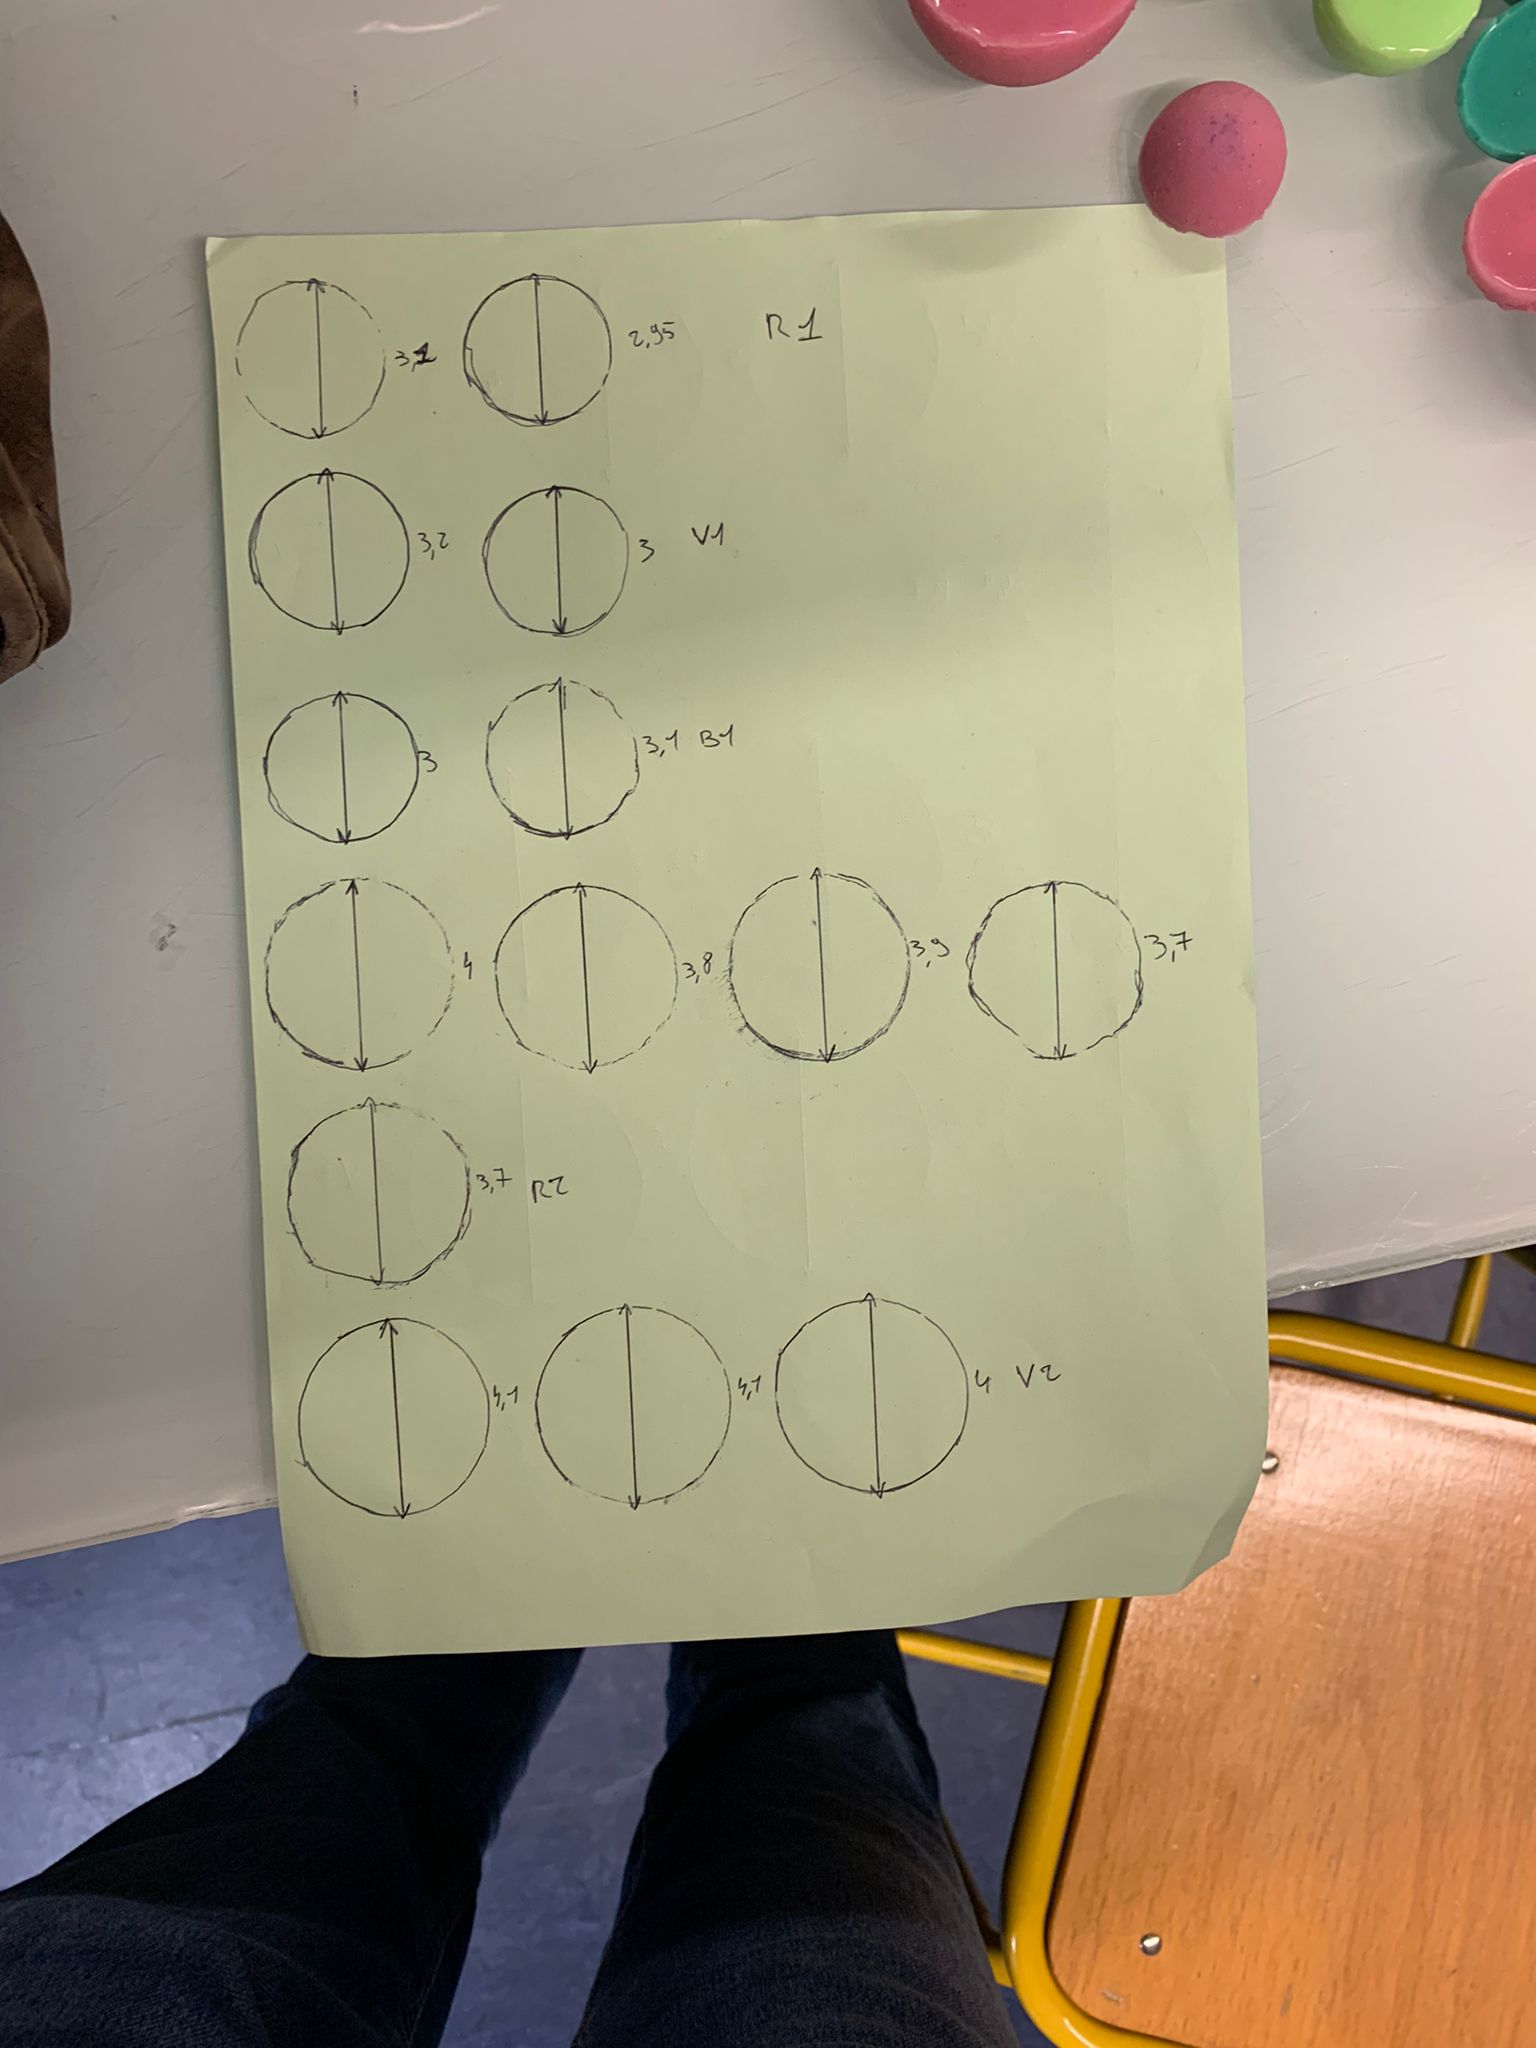 3,1 2,95 R1
3,2 3 V1
3 3,1 B1
4 3,8 3,9 3,7
3,7 R2
4,1 4,1 4 V2